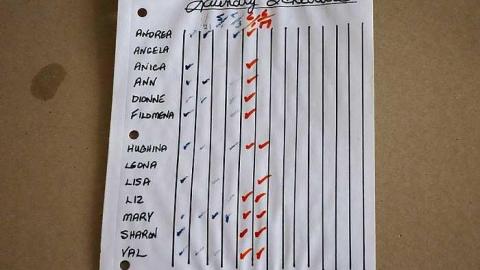 ANDREA
ANGELA
ANICA
ANN
DIONNE
FILOMENA
HUGHINA
LEONA
LISA
LIZ
MARY
SHARON
VAL